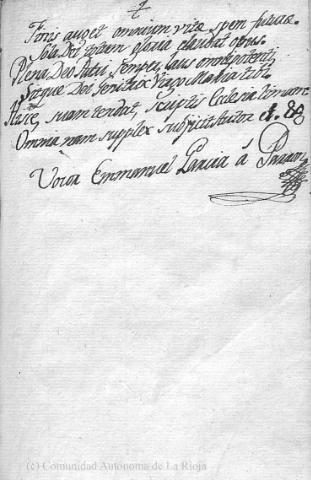 Finis auget omnium vitæ spem futuræ.
Sola Dei totum gloria claudat opus.
Plena Deo Patri semper laus omnipotenti
Sitque Dei Genitrix Virgo Maria tibi.
suam tendat, scriptis Eclesia
Omnia nam supplex subjicit
Emmanuel Garcia á
(c) Comunidad Autónoma de La Rioja